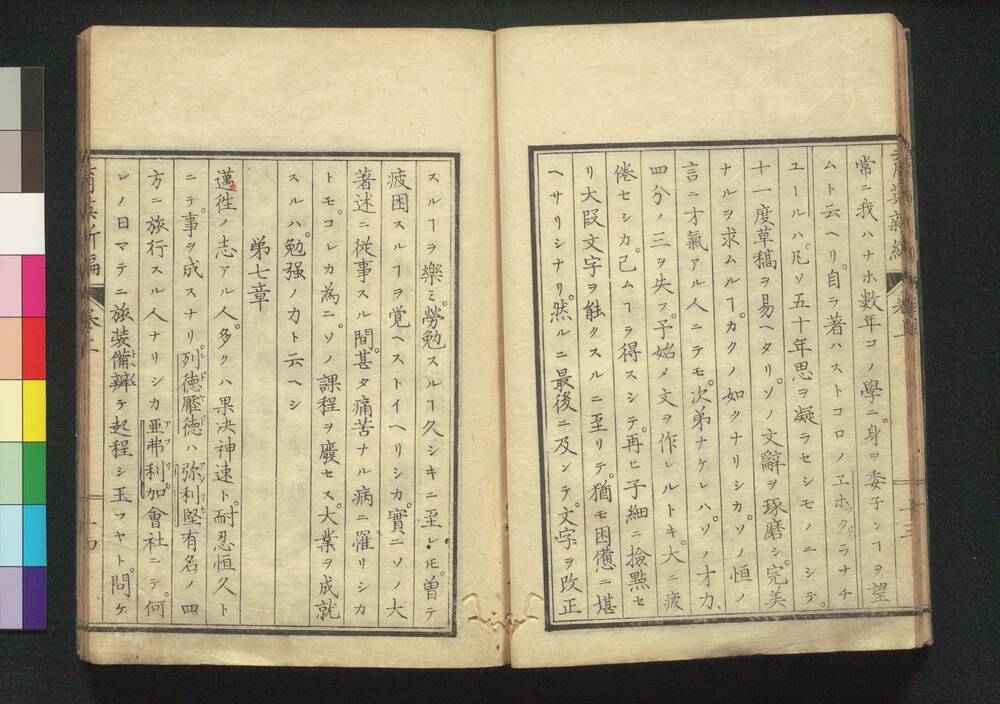 常ニ我ハナホ數年コノ學ニ身ヲ委子ンヿヲ望
ムト云ヘリ。自ラ著ハストコロノエホックドラナチ
ユールハ。凡ソ五十年思ヲ凝ラセシモノニシテ。
十一度草稿ヲ易ヘタリ。ソノ文辭ヲ琢磨シ。完美
ナルヲ求ムルヿ。カクノ如クナリシカ。ソノ恒ノ
言ニ才氣アル人ニテモ。次第ナケレハ。ソノ才力
四分ノ三ヲ失フ。予始メ文ヲ作レルトキ。大ニ疲
倦セシカ。己ムヿヲ得スシテ。再ヒ子細ニ撿㸃セ
リ大段文字ヲ能クスルニ至リテ。猶モ困憊ニ堪
ヘサリシナリ。然ルニ最後ニ及ンテ。文字ヲ改正
スルヿヲ樂ミ。勞勉スルヿ久シキニ至レ𪜈。曾テ
疲困スルヿヲ覺ヘストイヘリシカ。實ニソノ大
著述ニ從事スル間。甚タ痛苦ナル病ニ罹リシカ
トモ。コレカ為ニ。ソノ課程ヲ廢セス。大業ヲ成就
スルハ。勉强ノカト云ヘシ
第七章
邁徃ノ志アル人。多クハ果决神速ト。耐忍恒久ト
ニテ。事ヲ成スナリ。列德壓德ハ弥利堅有名ノ四
方ニ旅行スル人ナリシカ亜弗利加會社ニテ。何
レノ日マテニ旅装備辨テ起程シ玉フヤト。問ケ